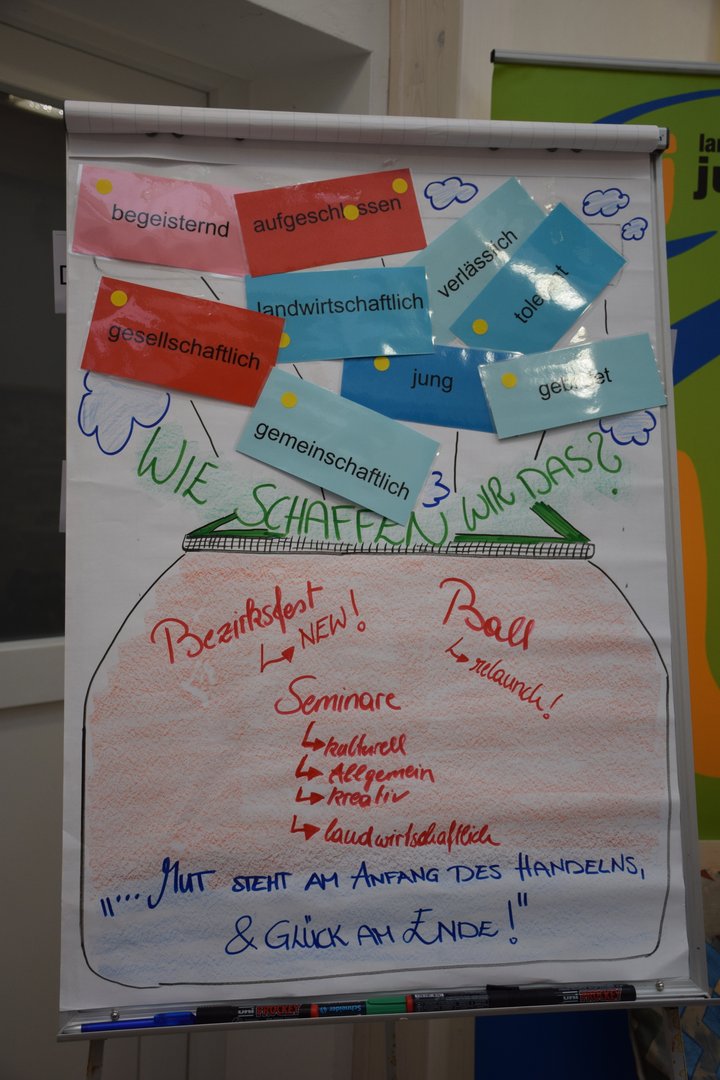 begeisternd
aufgeschlossen
verlässich
tolerant
landwirtschaftlich
gesellschaftlich
jung
gebildet
gemeinschaftlich
WIE SCHAFFEN WIR DAS?
Bezirksfest
↳ NEW!
Ball
↳ relaunch!
Seminare
↳ kulturell
↳ Allgemein
↳ kreativ
↳ landwirtschaftlich
"... MUT STEHT AM ANFANG DES HANDELNS,
& GLÜCK AM ENDE!"
Schneider